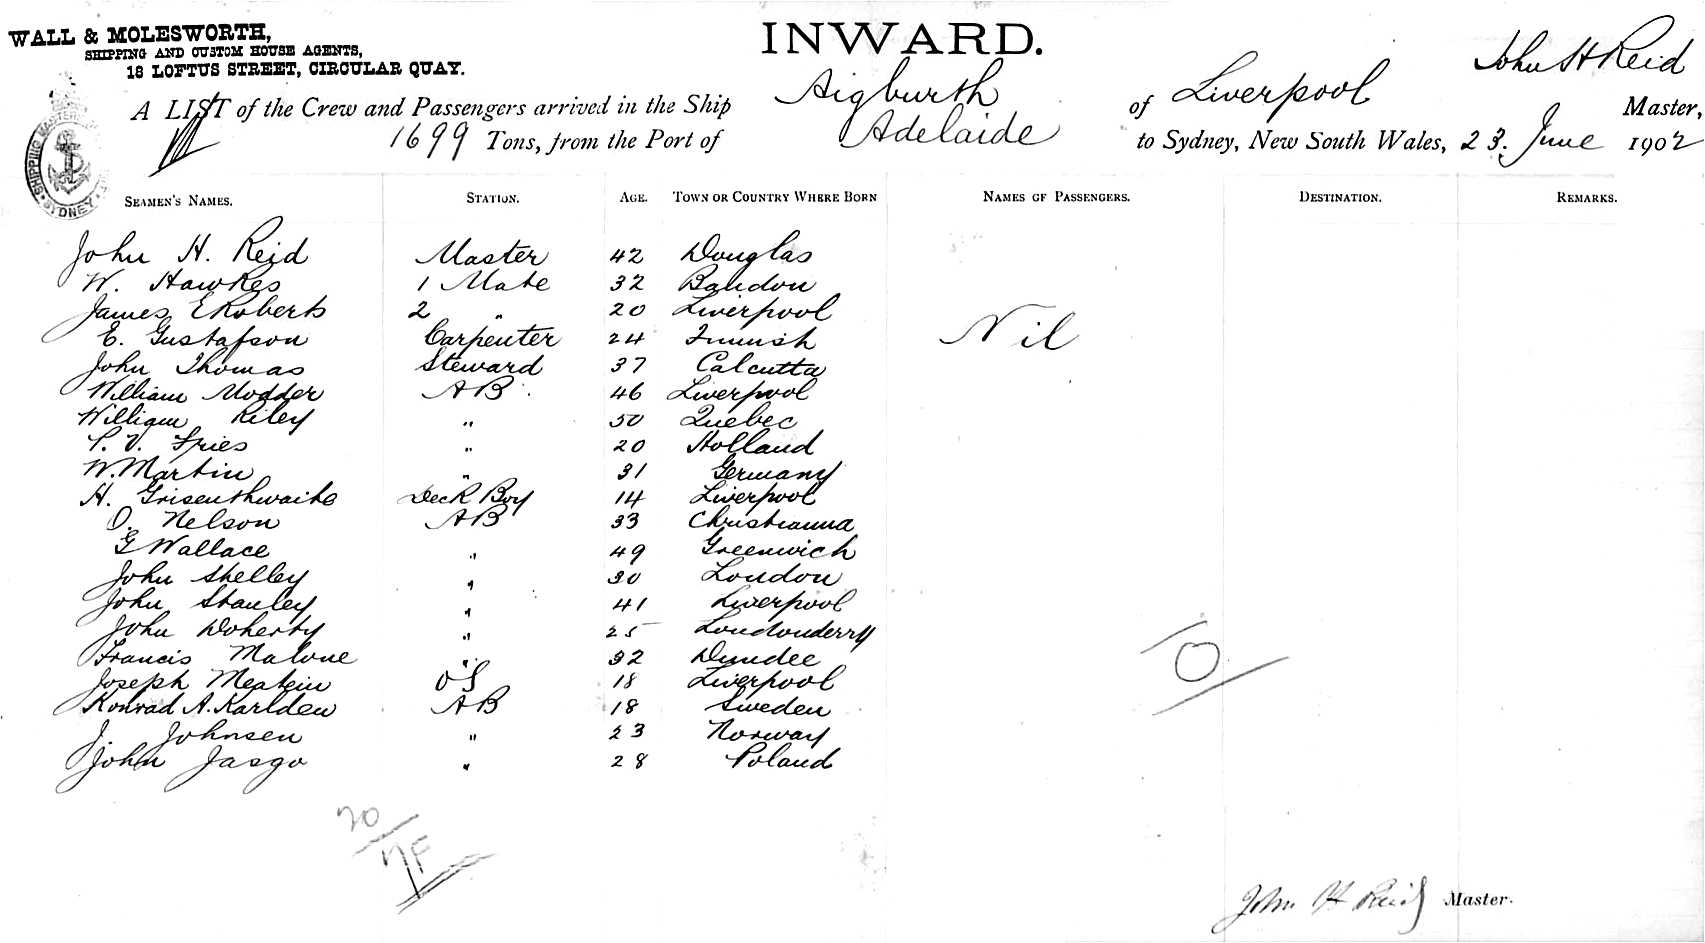 WALL & MOLESWORTH,
SHIPPING AND CUSTOM HOUSE AGENTS,
18 LOFTUS STREET, CIRCULAR QUAY.
INWARD.
John H Reid
A LIST of the Crew and Passengers arrived in the Ship Aigburth of Liverpool Master,
1699 Tons, from the Port of Adelaide to Sydney, New South Wales, 23. June 1902
SHIPPING MASTER SYDNEY
SEAMEN'S NAMES. STATION. AGE. TOWN OR COUNTRY WHERE BORN NAMES OF PASSENGERS. DESTINATION. REMARKS.
John H. Reid Master 42 Douglas
W. Hawkes 1 Mate 32 Bandon
James E Roberts 2 " 20 Liverpool
E. Gustafson Carpenter 24 Finnish Nil
John Thomas Steward 37 Calcutta
William Modder AB 46 Liverpool
William Riley " 50 Quebec
Fries " 20 Holland
W. Martin " 31 Germany
H. Grisenthwaite Deck Boy 14 Liverpool
O. Nelson AB 33 Christianna
G Wallace " 49 Greenwich
John Shelley " 30 London
John Stanley " 41 Liverpool
John Doherty " 25 Londonderry
Francis Malone " 32 Dundee
Joseph " OS 18 Liverpool
Konrad A. Karlden AB 18 Sweden
J. Johnsen " 23 Norway
John Jasgo " 28 Poland
20
John H Reid Master.